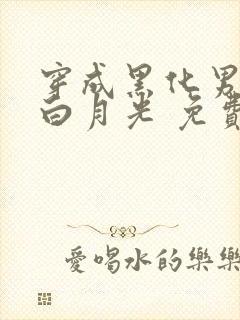 穿成黑化男
白月光 免費
愛喝水的樂樂